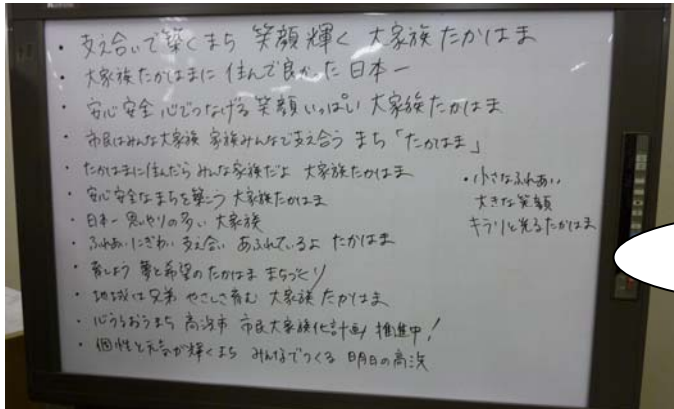 ・支え合いで築くまち 笑顔輝く 大家族たかはま
・大家族たかはまに住んで良かった日本一
・安心安全 心でつなげる笑顔いっぱい 大家族たかはま
・市民はみんな大家族 家族みんなで支え合う まち「たかはま」
・たかはまに住んだら みんな家族だよ 大家族たかはま
・安心安全なまちを築こう 大家族たかはま
・日本一 思いやりの多い 大家族
・ふれあい にぎわい 支え合い あふれているよ たかはま
・育しよう 夢と希望のたかはま まちづくり
・地域は兄弟 やさしさ育む 大家族 たかはま
・心うるおうまち 高浜市 市民大家族化計画 推進中!
・個性と元気が輝くまち みんなでつくる 明日の高浜
・小さなふれあい
大きな笑顔
キラリと光るたかはま